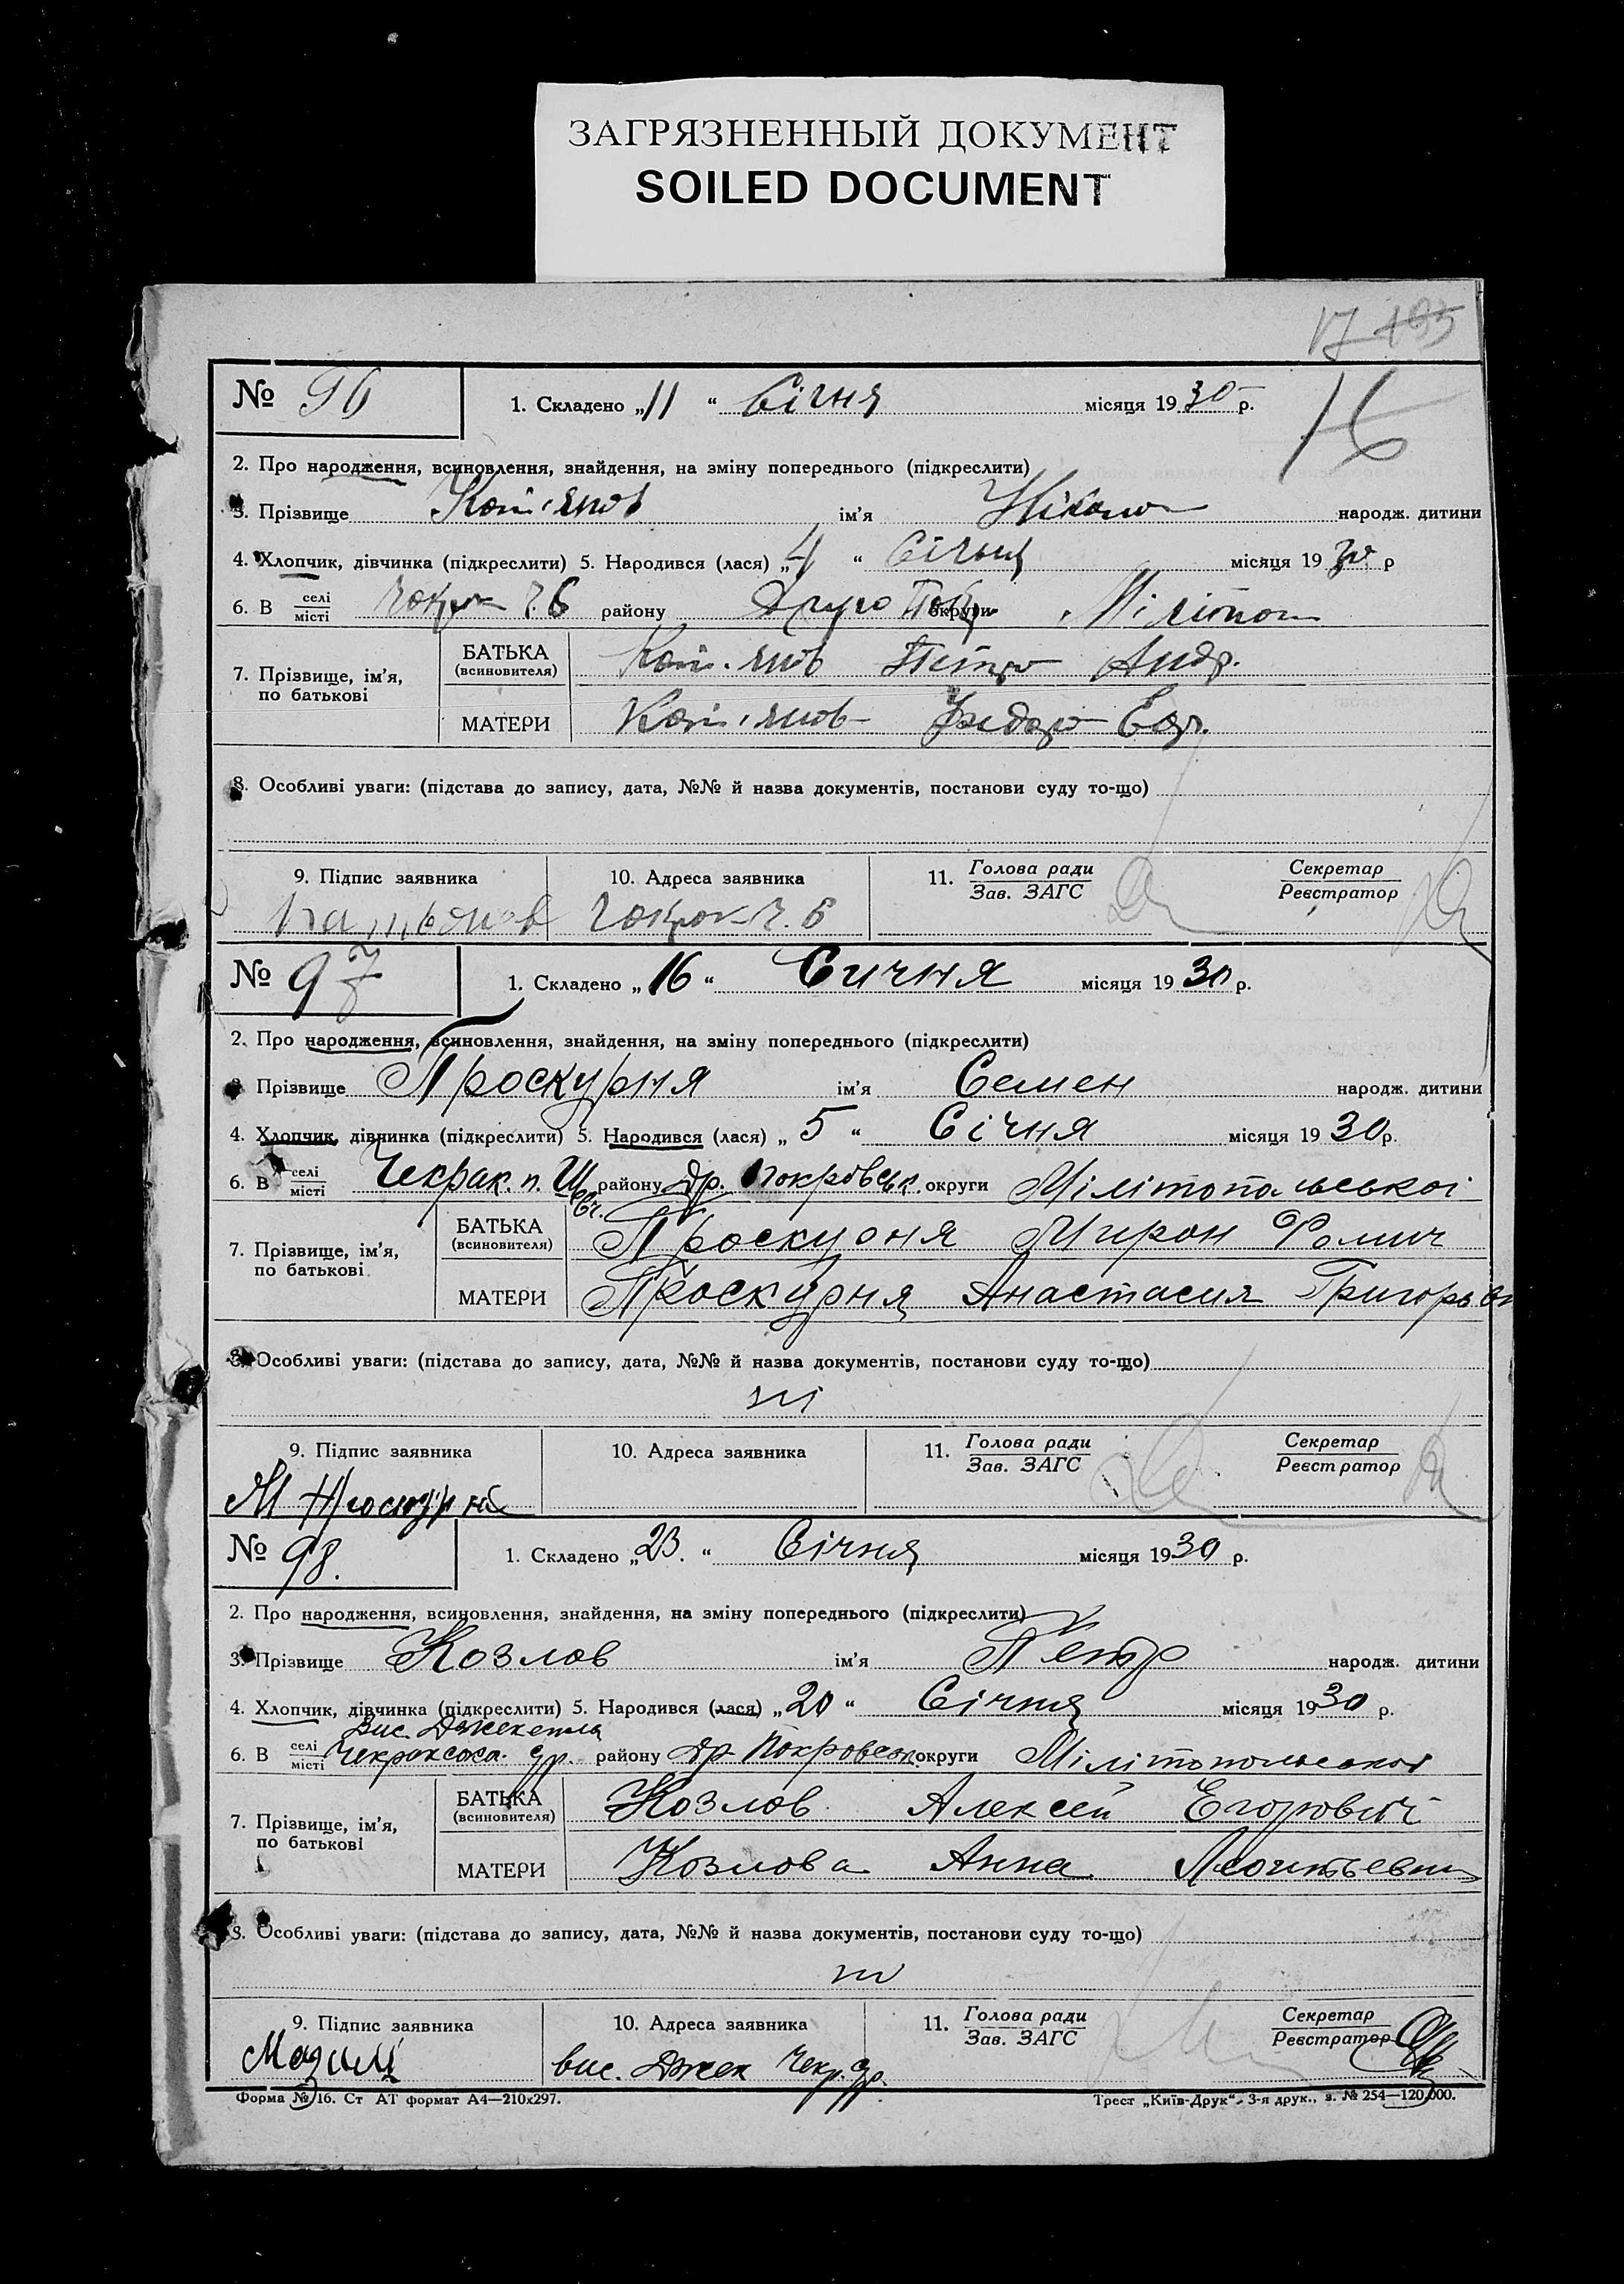 ЗАГРЯЗНЕННЫЙ ДОКУМЕНТ
SOILED DOCUMENT
17 193
№ 96 1. Складено „11“ Січня місяця 1930 р.
16
2. Про народження, всиновлення, знайдення, на зміну попереднього (підкреслити)
3. Прізвище ім’я народж. дитини
4. Хлопчик, дівчинка (підкреслити) 5. Народився (лася) „4“ Січня місяця 1930 р
6. В селі району округиМіліт
місті
БАТЬКА Петро Андр.
(всиновителя)
7. Прізвище, ім’я,
по батькові
МАТЕРИ
8. Особливі уваги: (підстава до запису, дата, №№ й назва документів, постанови суду то-що)
9. Підпис заявника 10. Адреса заявника 11. Голова ради Секретар
Зав. ЗАГС Реєстратор
№ 97 1. Складено „16“ Сичня місяця 1930 р.
2. Про народження, всиновлення, знайдення, на зміну попереднього (підкреслити)
3 Прізвище Проскурня ім’я Семен народж. дитини
4. Хлопчик, дівчинка (підкреслити) 5. Народився (лася) „5“ Січня місяця 1930 р.
6. В селі Чекрак. п. Ш району Др. Покровськ. округи Мілітопальськоі
місті
БАТЬКА Проскурня Мирон Фомич
(всиновителя)
7. Прізвище, ім’я,
по батькові
МАТЕРИ Проскурня Анастасия
8. Особливі уваги: (підстава до запису, дата, №№ й назва документів, постанови суду то-що)
ні
9. Підпис заявника 10. Адреса заявника 11. Голова ради Секретар
Зав. ЗАГС Реєстратор
М Проскурня
№ 98. 1. Складено „23.“ Січня місяця 1930 р.
2. Про народження, всиновлення, знайдення, на зміну попереднього (підкреслити)
3. Прізвище Козлов ім’я Петр народж. дитини
4. Хлопчик, дівчинка (підкреслити) 5. Народився (лася) „20“ Січня місяця 1930 р.
Вис.
6. В селі др. району Др Покровськ. округи Мілітопольськоі
місті
БАТЬКА Козлов Алексей Егорович
(всиновителя)
7. Прізвище, ім’я,
по батькові
МАТЕРИ Козлова Анна Леонтьевна
8. Особливі уваги: (підстава до запису, дата, №№ й назва документів, постанови суду то-що)
ні
9. Підпис заявника 10. Адреса заявника 11. Голова ради Секретар
Зав. ЗАГС Реєстратор
вис. Джек Чекр. др.
Форма № 16. Ст АТ формат А4—210x297. Трест „Київ-Друк“, 3-я друк., з. № 254—120.000.